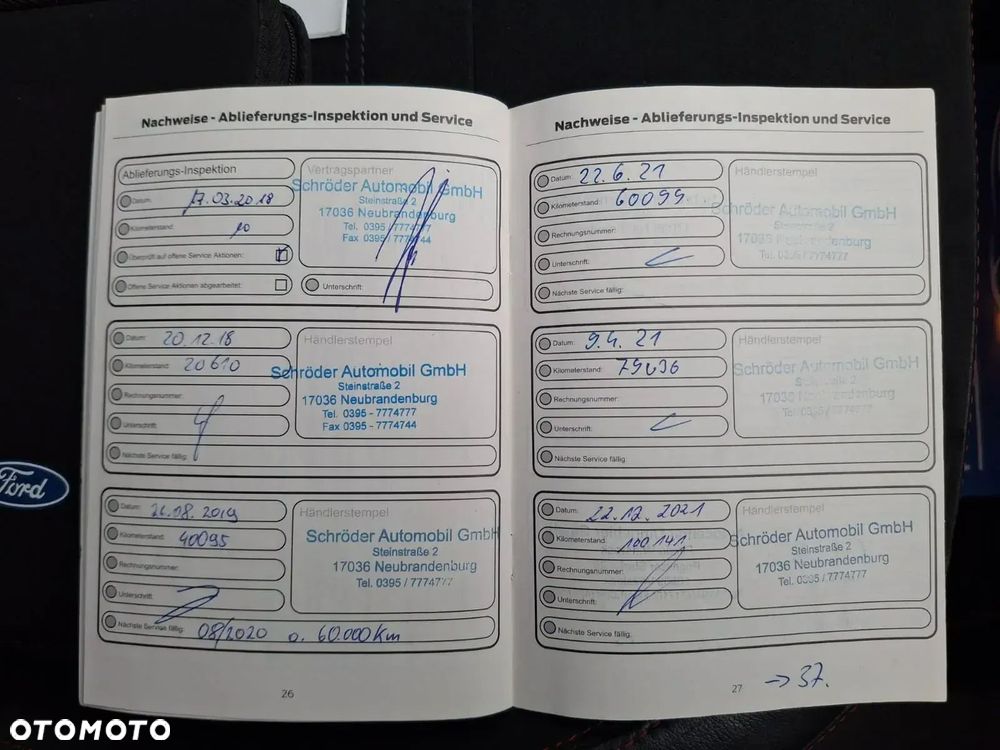 Nachweise - Ablieferungs-Inspektion und Service
Ablieferungs-Inspektion
Datum: 17.03.2018
Kilometerstand: 10
Überprüft auf offene Service Aktionen:
Offene Service Aktionen abgearbeitet:
Vertragspartner
Schröder Automobil GmbH
Steinstraße 2
17036 Neubrandenburg
Tel. 0395 / 7774777
Fax 0395 / 7774744
Unterschrift:
Datum: 20.12.18
Kilometerstand: 20610
Rechnungsnummer:
Unterschrift:
Nächste Service fällig:
Händlerstempel
Schröder Automobil GmbH
Steinstraße 2
17036 Neubrandenburg
Tel. 0395 - 7774777
Fax 0395 - 7774744
Datum: 26.08.2019
Kilometerstand: 40095
Rechnungsnummer:
Unterschrift:
Nächste Service fällig: 08/2020 o. 60.000 Km
Händlerstempel
Schröder Automobil GmbH
Steinstraße 2
17036 Neubrandenburg
Tel. 0395 / 7774777
26
Nachweise - Ablieferungs-Inspektion und Service
Datum: 22.6.21
Kilometerstand: 60099
Rechnungsnummer:
Unterschrift:
Nächste Service fällig:
Händlerstempel
Schröder Automobil GmbH
Steinstraße 2
17036 Neubrandenburg
Tel. 0395 / 7774777
Datum: 9.4.21
Kilometerstand: 79036
Rechnungsnummer:
Unterschrift:
Nächste Service fällig:
Händlerstempel
Schröder Automobil GmbH
17036 Neubrandenburg
Tel. 0395/7774777
Datum: 22.12.2021
Kilometerstand: 100141
Rechnungsnummer:
Unterschrift:
Nächste Service fällig:
Händlerstempel
Schröder Automobil GmbH
Steinstraße 2
17036 Neubrandenburg
Tel. 0395 / 7774777
27 → 37.
Ford
OTOMOTO